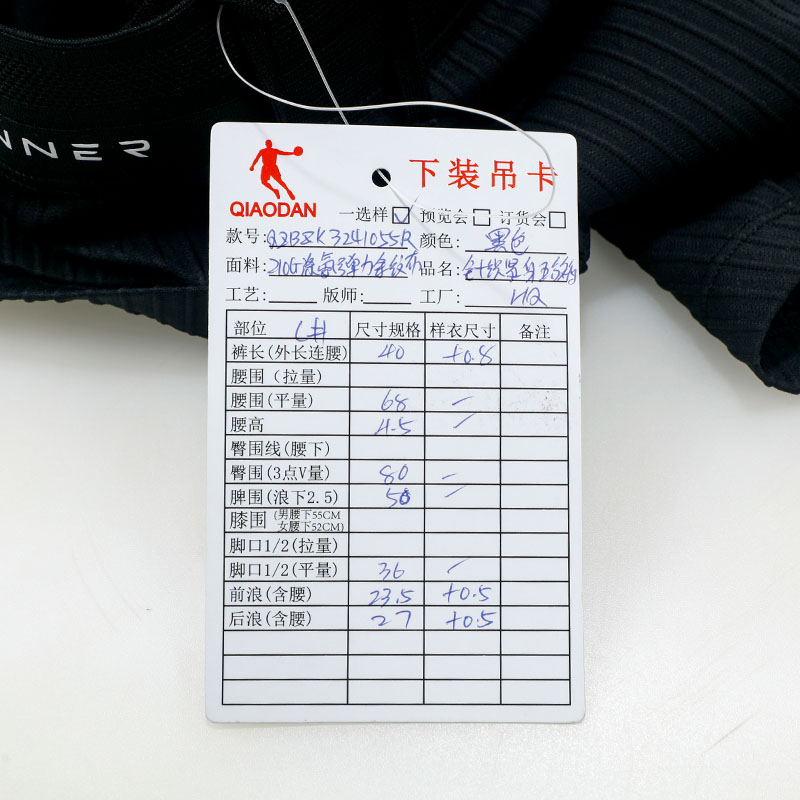 NNER
下装吊卡
QIAODAN
一选样☑ 预览会□ 订货会□
款号: 颜色: 黑色
面料: 210G涤氨弹力条纹布 品名:
工艺: 版师: 工厂: HQ
部位 L# 尺寸规格 样衣尺寸 备注
裤长(外长连腰) 40 +0.8
腰围(拉量)
腰围(平量) 68 —
腰高 4.5 —
臀围线(腰下)
臀围(3点V量) 80 —
脾围(浪下2.5) 50 —
膝围 (男腰下55CM
女腰下52CM)
脚口1/2(拉量)
脚口1/2(平量) 36 —
前浪(含腰) 23.5 +0.5
后浪(含腰) 27 +0.5